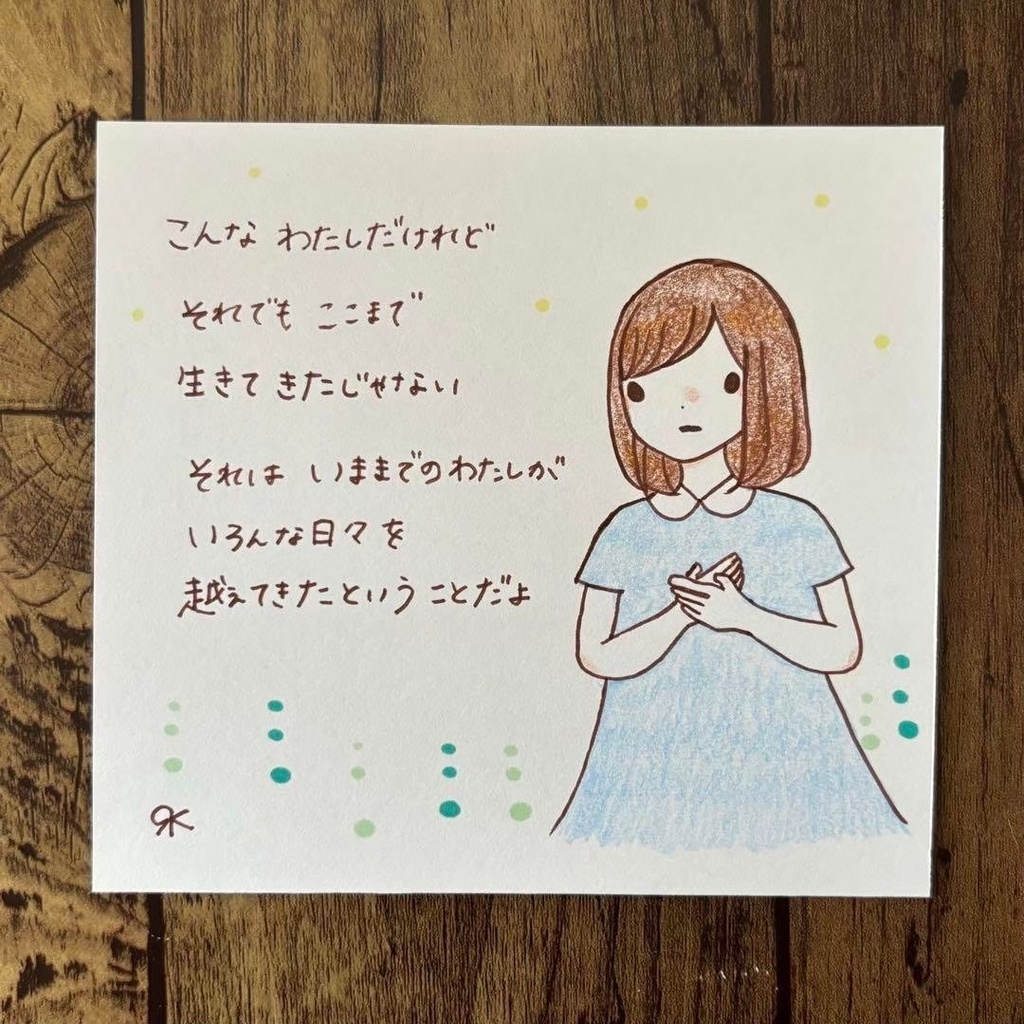 こんな わたしだけれど
それでも ここまで
生きて きたじゃない
それは いままでのわたしが
いろんな日々を
越えてきたということだよ